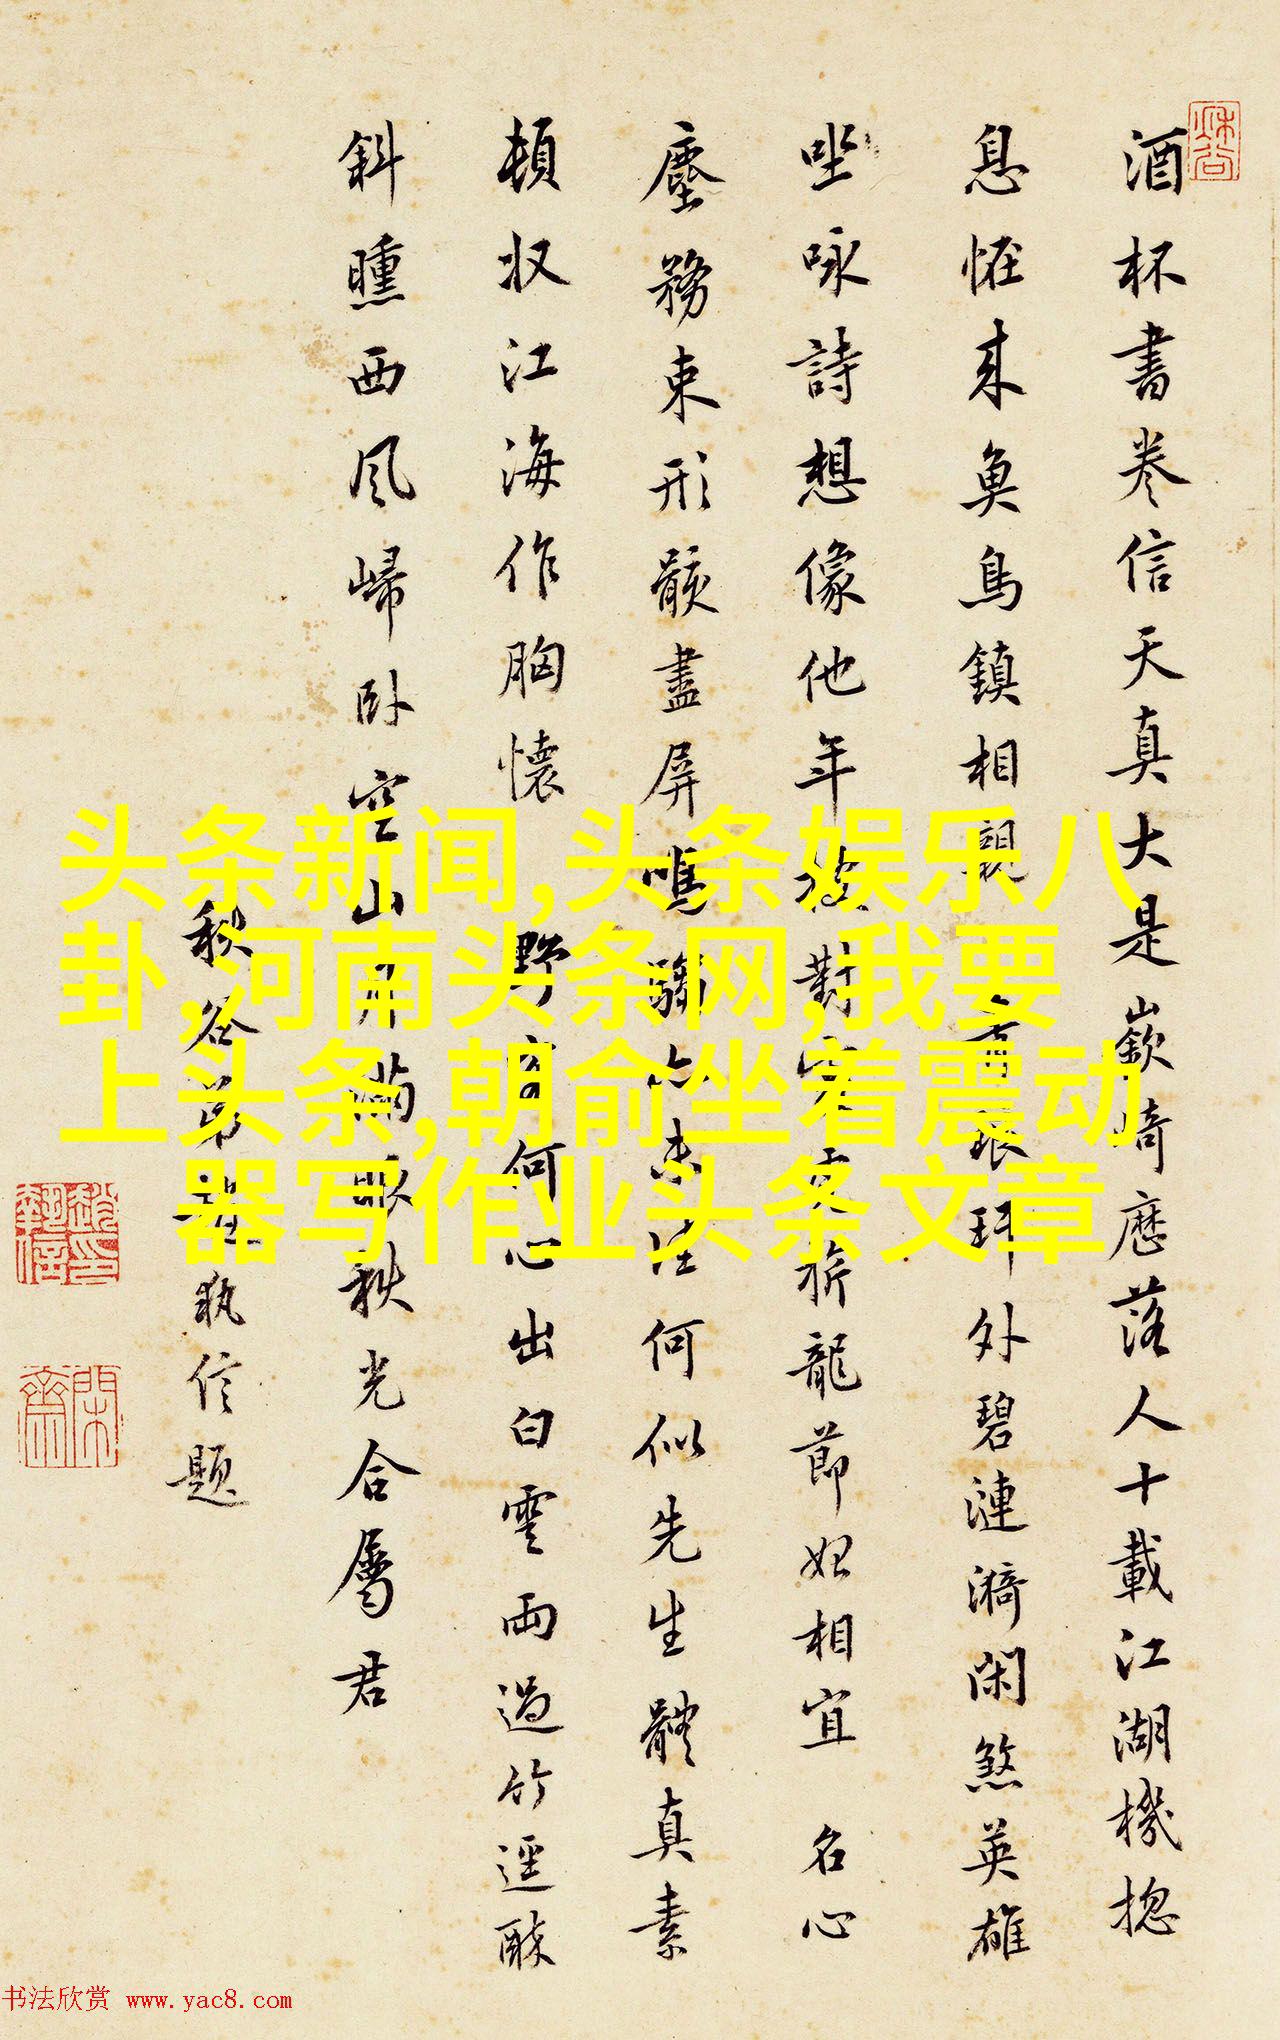 酒杯書卷信天真大是嶔崎歷落人十載江湖機揔
息怪来魚鳥鎮相親 琅玕外碧漣漪閑煞英雄
坐咏詩想像他年 對 龍節始相宜 名心
塵務束形骸盡屏鳴騶 何似先生體真素
頓收江海作胸懷 野 何心出白雲雨過竹逕酥
斜曛西風歸卧空山 滿眼秋光合屬君
秋谷弟趙執信題
头条新闻,头条娱乐八
卦,河南头条网,我要
上头条,朝俞坐着震动
器写作业头条文章
书法欣赏 www.yac8.com